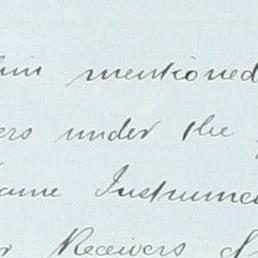 mentioned
under the
same Instrumen
Receivers of